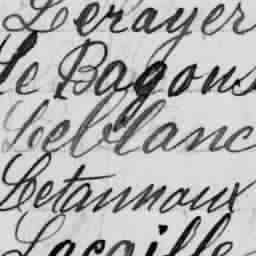 Lerayer
Le Bagous
Leblanc
Letannoux
Lacaille